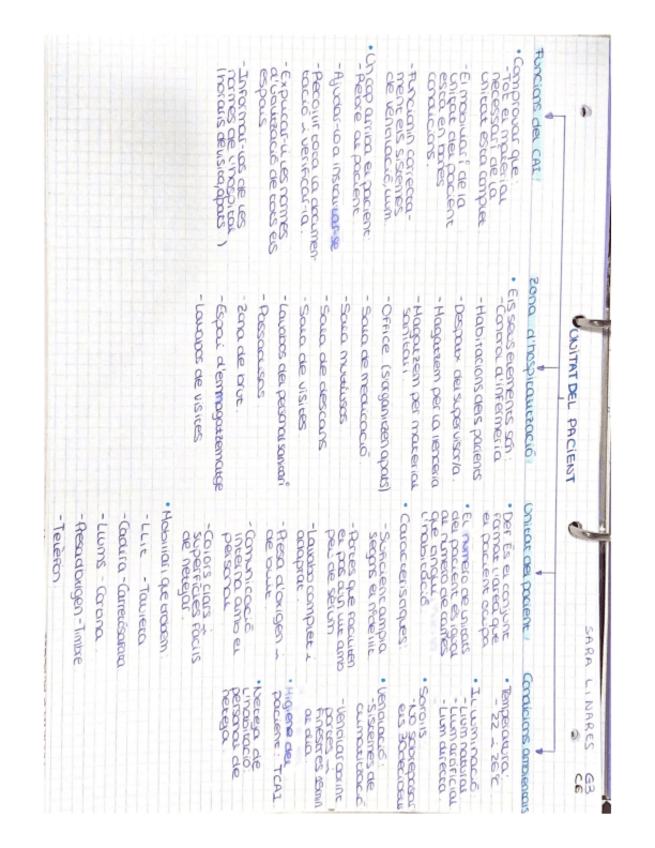 SARA LINARES G3
C6
UNITAT DEL PACIENT
Funcions del CAI:
• Comprovar que:
- Tot el material
necessari de la
unitat està complet
- El mobiliari de la
unitat del pacient
està en bones
condicions.
- Funcionin correcta-
ment els sistemes
de ventilació, llum
• Un cop arriba el pacient
- Rebre al pacient
- Ajudar-lo a instal·lar-se
- Recollir tota la documen-
tació i verificar-la.
- Explicar-li les normes
d'utilització de tots els
espais
- Informar-los de les
normes de l'hospital
(horaris de visita, àpats)
Zona d'hospitalització:
• Els seus elements són:
- Control d'infermeria
- Habitacions dels pacients
- Despatx del supervisor/a.
- Magatzem per la llenceria
- Magatzem per material
sanitari.
- Office (s'organitzen àpats)
- Sala de medicació.
- Sala multiusos
- Sala de descans
- Sala de visites
- Lavabos del personal sanitari
- Passadissos
- Zona de brut.
- Espai d'emmagatzematge
- Lavabos de visites.
Unitat del pacient:
• Def: És el conjunt
format l'àrea que
el pacient ocupa
• El número de unitats
del pacient és igual
al número de cames
que tingui
l'habitació
• Característiques:
- Suficient àmplia
segons el nº de llit
- Portes que faciliten
el pas d'un llit amb
peu de sèrum
- Lavabo complet i
adaptat.
- Presa d'oxigen i
de buit.
- Comunicació
interna amb el
personal
- Colors clars i
superfícies fàcils
de netejar.
• Mobiliari que trobem:
- Llit - Tauleta
- Cadira - Carrelsarata
- Llums - Corona.
- Presa d'oxigen - Timbre
- Telèfon.
Condicions ambientals
• Temperatura:
- 22 i 26ºC
• Il·luminació
- Llum natural
- Llum artificial
- Llum directa
• Sorolls
- No sobrepassar
els 30decibels
• Ventilació:
- Sistemes de
climatització
- Ventilar obrint
portes i
finestres 15min
al dia.
• Higiene del
pacient: TCAI
• Neteja de
l'habitació:
personal de
neteja